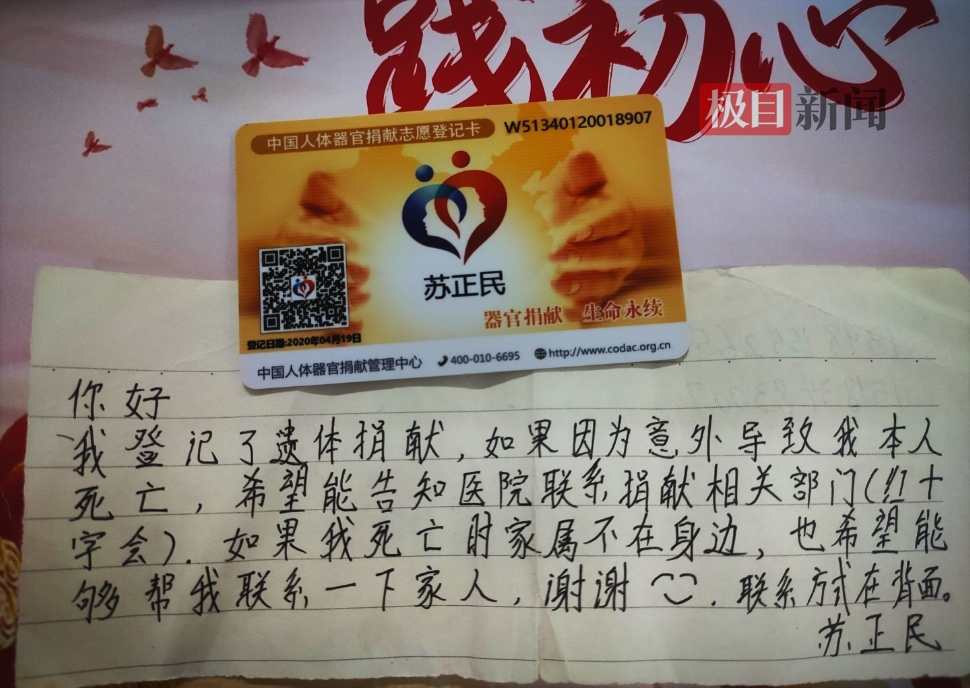 践初心
极目新闻
中国人体器官捐献志愿登记卡 W51340120018907
苏正民
器官捐献 生命永续
登记日期:2020年04月19日
中国人体器官捐献管理中心 400-010-6695 http://www.codac.org.cn
你好
我登记了遗体捐献,如果因为意外导致我本人
死亡,希望能告知医院联系捐献相关部门(红十
字会).如果我死亡时家属不在身边,也希望能
够帮我联系一下家人,谢谢.联系方式在背面。
苏正民